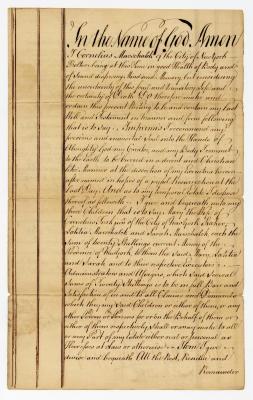 In the Name of God Amen
I Cornelius of the City of New York
being at this time in good Health of Body and
of Sound disposing Mind and Memory, but considering
the uncertainty of this frail and transitory Life and
the certainty of Death Do therefore make and
ordain this present Writing to be and contain my Last
Will and Testament in manner and form following
that is to Say, Imprimis I recommend my
precious and immortal Soul into the Hands of
Almighty God my Creator, and my Body I commit
to the Earth to be buried in a decent and Christian
like Manner at the discretion of my Executors herein
after named in hopes of a joyful Resurrection at the
Last Day. And as to my temporal Estate I dispose
thereof as followeth. I give and bequeath unto my
three Children that is to Say Mary the Wife of
Cornelius of the City of New York
and Sarah unto the
Sum of twenty Shillings current Money of the
Province of New York, to them the said Mary,
and Sarah and to their respective Executors
Administrators and Assigns, which said Several
Sums of Twenty Shillings is to be in full Bar and
Satisfaction of and to all Claims and Demands
which they my said Children or either of them, or any
other Person or Persons for or in the Behalf of them or
either of them respectively shall or may make to all
or any Part of my Estate either real or personal or
otherwise. Item I give
devise and bequeath All the Rest, Residue and
Remainder